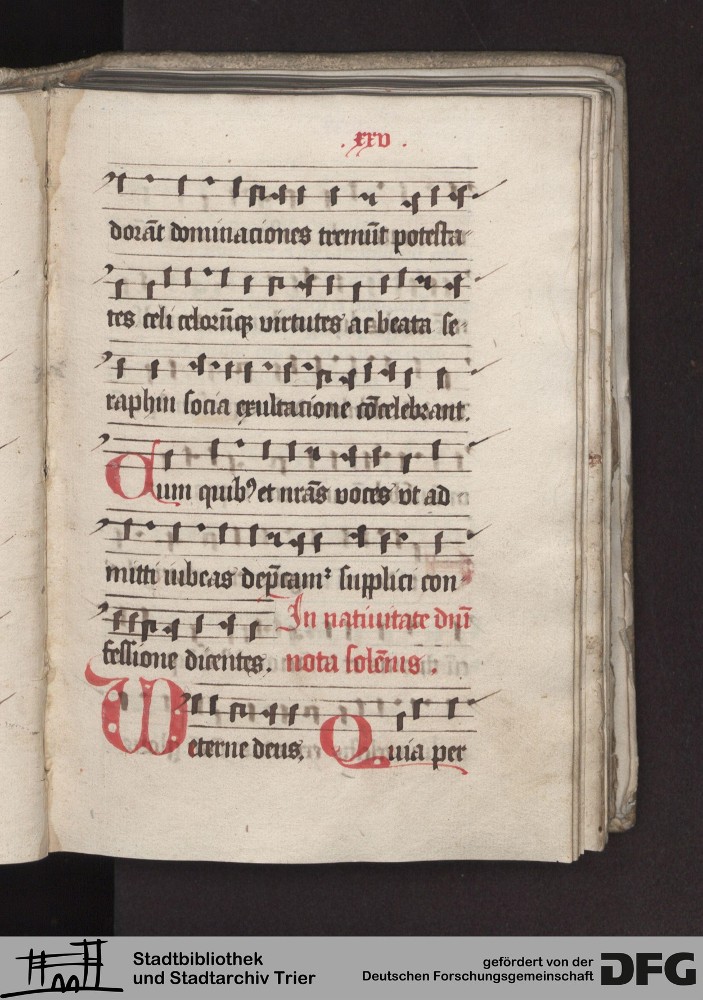 . xxv .
dorāt dominaciones tremūt potesta
tes celi celorūqꝫ virtutes ac beata se-
raphin socia exultacione cōcelebrant.
Cum quibꝰ et nr̄as voces vt ad
mitti iubeas dep̄camꝛ supplici con
In natiuitate dnī
fessione dicentes. nota solēnis .
eterne deus. Quia per
Stadtbibliothek
und Stadtarchiv Trier
gefördert von der
Deutschen Forschungsgemeinschaft DFG